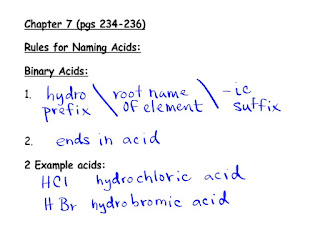 Chapter 7 (pgs 234-236)
Rules for Naming Acids:
Binary Acids:
1. hydro \ root name \ -ic
prefix \ of element \ suffix
2. ends in acid
2 Example acids:
HCl hydrochloric acid
HBr hydrobromic acid